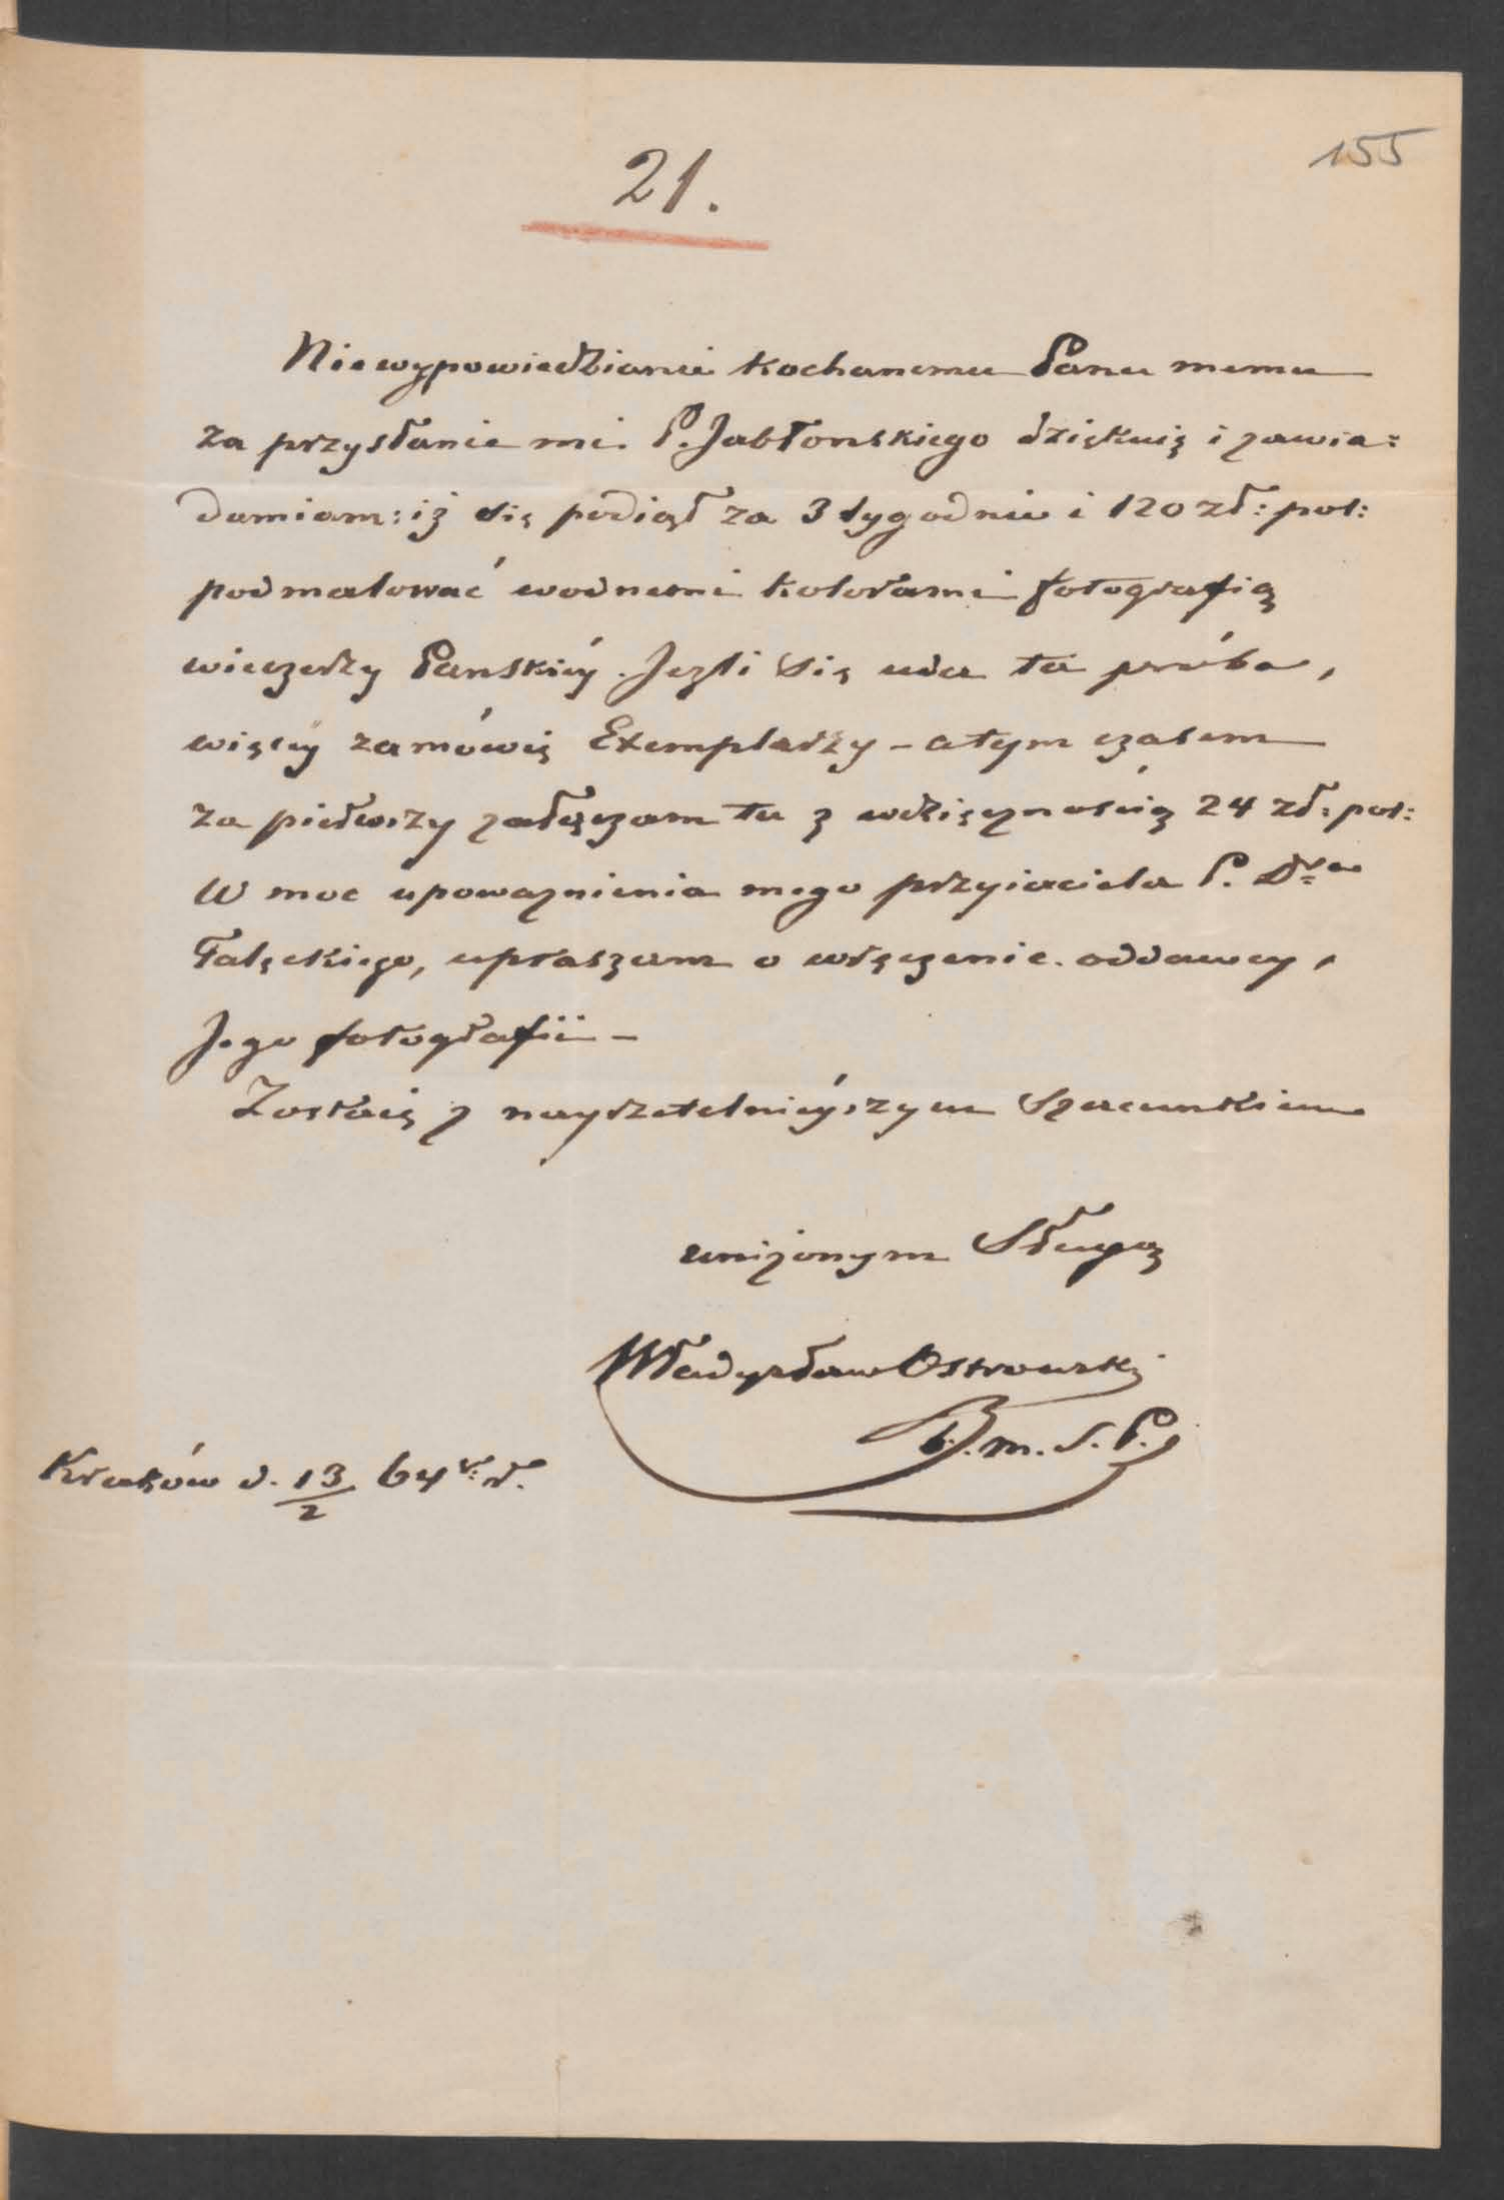 155
21.
Niewypowiedzianie kochanemu Panu memu
za przysłanie mi P. Jabłonskiego dziękuię i zawia=
damiam: iż się podiął za 3 tygodnie i 120 zł: pol:
podmalować wodnemi kolorami fotografią
wieczerzy Panskiéy. Jeżli się uda ta próba,
więcéy zamówię Exemplarzy - a tym czasem
za pierwszy załączam tu z wdzięcznością 24 zł: pol:
W moc upoważnienia mego przyiaciela P. Dra
Gałęckiego, upraszam o wręczenie oddawcy,
Jego fotografii -
Zostaię z nayrzetelnieyszym Szacunkiem
uniżonym Sługą
Władysław Ostrowski
B. m. S. P.
Kraków d. 13/2 64 r.